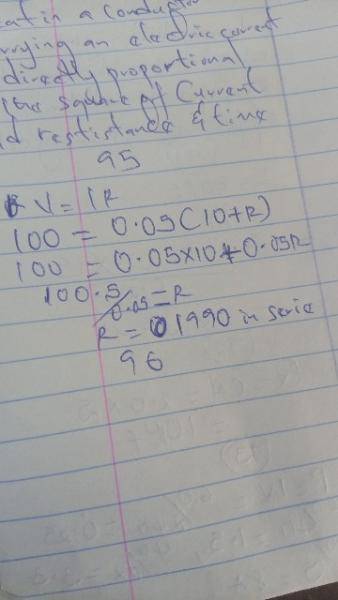 in a conductor
rrying an electric current
directly proportional
the square of Current
d restistance & time
95
V = IR
100 = 0.05(10+R)
100 = 0.05×10+0.05R
100.5/0.05 = R
R = 1990 in serie
96